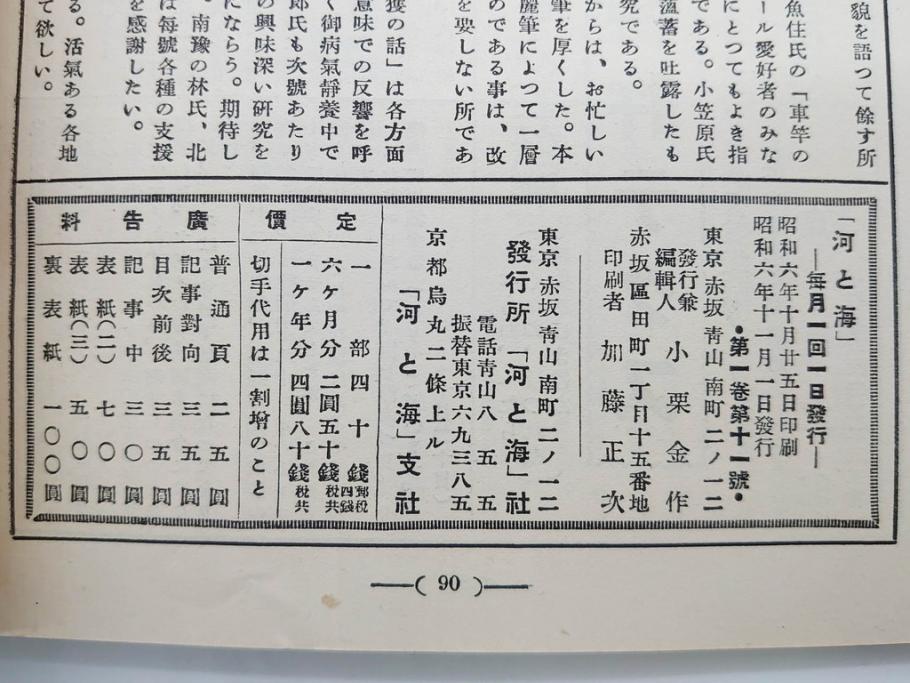 貌を語つて餘す所
魚住氏の「車竿の
ール愛好者のみな
にとつてもよき指
である。小笠原氏
蘊蓄を吐露したも
究である。
からは、お忙しい
筆を厚くした。本
麗筆によつて一層
のである事は、改
を要しない所であ
獲の話」は各方面
意味での反響を呼
く御病氣靜養中で
郎氏も次號あたり
の興味深い研究を
にならう。期待し
。南豫の林氏、北
は毎號各種の支援
を感謝したい。
る。活氣ある各地
て欲しい。
「河と海」
―毎月一回一日發行―
昭和六年十月廿五日印刷
昭和六年十一月一日發行
●第一卷第十一號●
東京赤坂青山南町二ノ一二
發行兼編輯人 小栗金作
赤坂區田町一丁目十五番地
印刷者 加藤正次
東京赤坂青山南町二ノ一二
發行所「河と海」社
電話青山八五五五
振替東京六九三八五
京都烏丸二條上ル
「河と海」支社
定價
一部四十錢 郵税四錢
六ヶ月分 二圓五十錢 税共
一ヶ年分 四圓八十錢 税共
切手代用は一割增のこと
廣告料
普通頁 二五圓
記事對向 三五圓
目次前後 三五圓
記事中 三〇圓
表紙(二) 七〇圓
表紙(三) 五〇圓
裏表紙 一〇〇圓
―( 90 )―